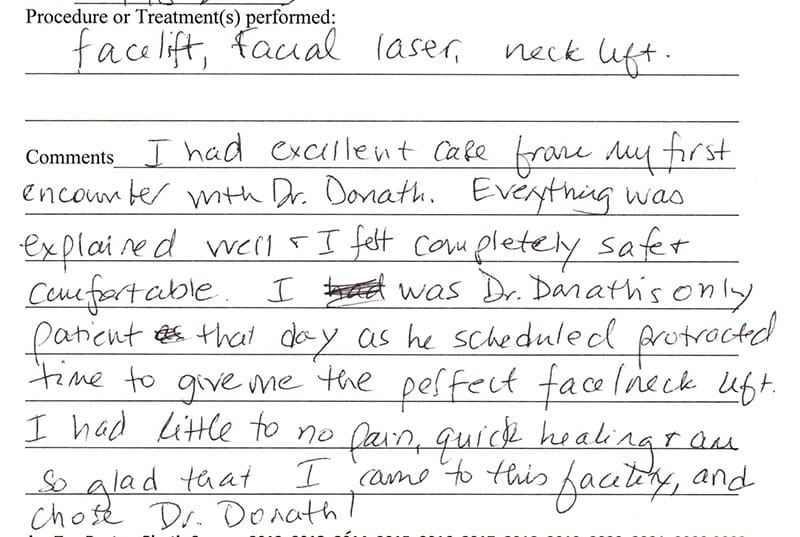 Procedure or Treatment(s) performed:
facelift, facial laser, neck lift.
Comments I had excellent care from my first
encounter with Dr. Donath. Everything was
explained well & I felt completely safe &
comfortable. I was Dr. Donath's only
patient that day as he scheduled protracted
time to give me the perfect face/neck lift.
I had little to no pain, quick healing & am
so glad that I came to this facility, and
chose Dr. Donath!